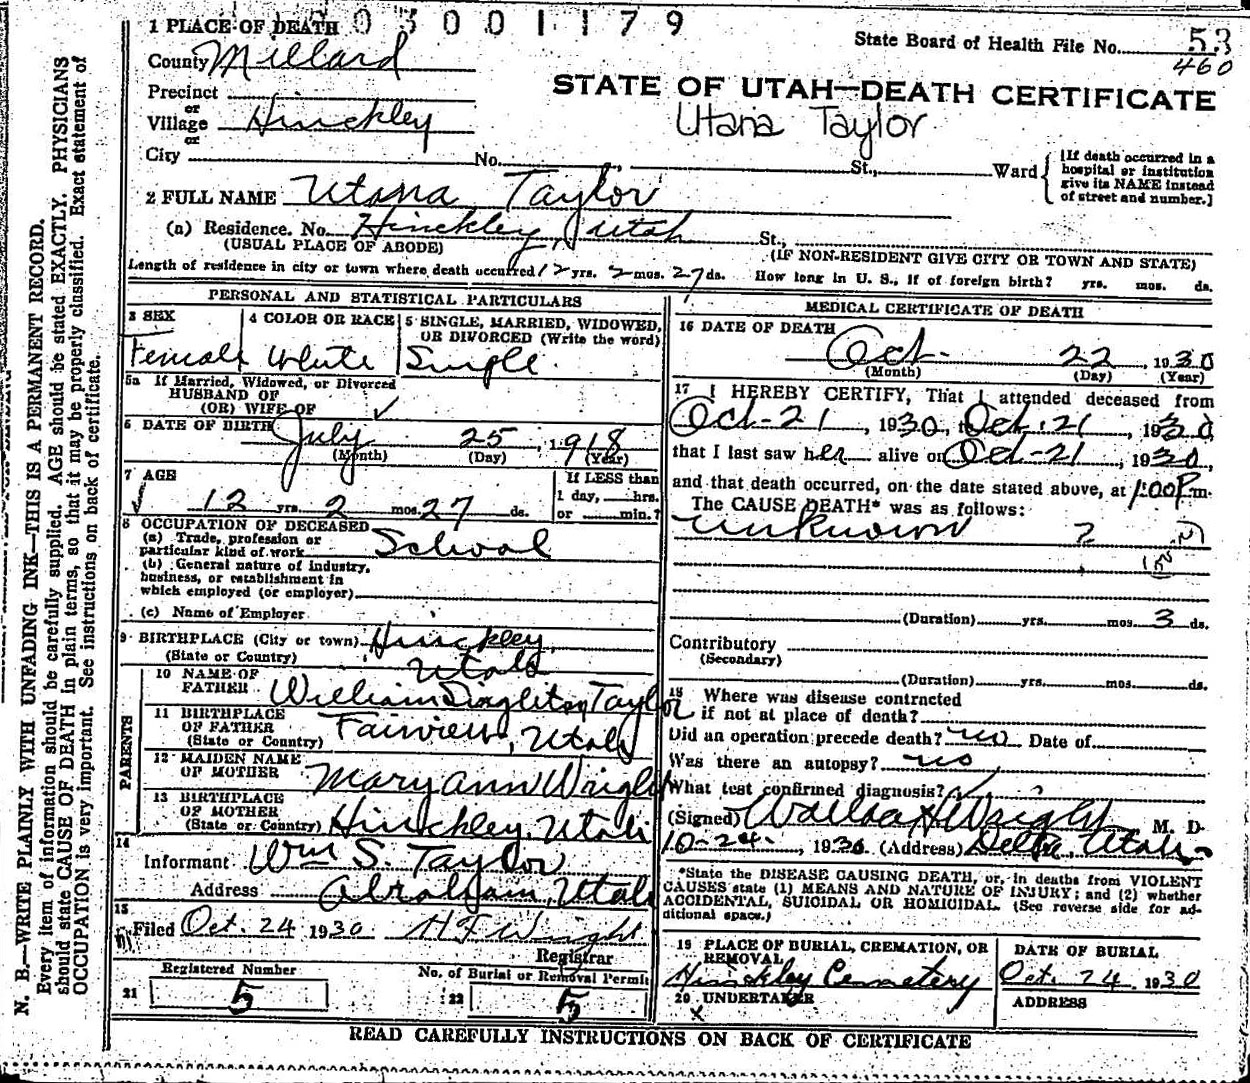 3 0 0 1 1 7 9
1 PLACE OF DEATH
State Board of Health File No. 53
460
County Millard
STATE OF UTAH—DEATH CERTIFICATE
Precinct
or
Village Hinckley
Utana Taylor
or
City No. St., Ward
[If death occurred in a hospital or institution give its NAME instead of street and number.]
2 FULL NAME Utana Taylor
(a) Residence. No. Hinckley, Utah St.,
(USUAL PLACE OF ABODE) (IF NON-RESIDENT GIVE CITY OR TOWN AND STATE)
Length of residence in city or town where death occurred 12 yrs. 2 mos. 27 ds. How long in U. S., if of foreign birth? yrs. mos. ds.
PERSONAL AND STATISTICAL PARTICULARS
3 SEX Female
4 COLOR OR RACE White
5 SINGLE, MARRIED, WIDOWED, OR DIVORCED (Write the word) Single
5a If Married, Widowed, or Divorced
HUSBAND OF
(OR) WIFE OF ✓
6 DATE OF BIRTH July 25, 1918
(Month) (Day) (Year)
7 AGE
✓ 12 yrs. 2 mos. 27 ds.
If LESS than
1 day, hrs.
or min.?
8 OCCUPATION OF DECEASED
(a) Trade, profession or
particular kind of work School
(b) General nature of industry,
business, or establishment in
which employed (or employer)
(c) Name of Employer
9 BIRTHPLACE (City or town) Hinckley,
(State or Country) Utah
PARENTS
10 NAME OF
FATHER William Singleton Taylor
11 BIRTHPLACE
OF FATHER
(State or Country) Fairview, Utah
12 MAIDEN NAME
OF MOTHER Mary Ann Wright
13 BIRTHPLACE
OF MOTHER
(State or Country) Hinckley, Utah
14
Informant Wm S. Taylor
Address Abraham, Utah
15
Filed Oct. 24 1930 H F Wright
Registrar
Registered Number
21 5
No. of Burial or Removal Permit
22 5
MEDICAL CERTIFICATE OF DEATH
16 DATE OF DEATH
Oct. 22, 1930
(Month) (Day) (Year)
17 I HEREBY CERTIFY, That I attended deceased from
Oct-21, 1930, to Oct. 21, 1930,
that I last saw her alive on Oct-21, 1930,
and that death occurred, on the date stated above, at 1:00 P.m.
The CAUSE DEATH* was as follows:
unknown ?
(Duration) yrs. mos. 3 ds.
Contributory
(Secondary)
(Duration) yrs. mos. ds.
18 Where was disease contracted
if not at place of death?
Did an operation precede death? no Date of
Was there an autopsy? no
What test confirmed diagnosis?
(Signed) M. D.
10-24, 1930. (Address) Delta, Utah
*State the DISEASE CAUSING DEATH, or, in deaths from VIOLENT
CAUSES state (1) MEANS AND NATURE OF INJURY; and (2) whether
ACCIDENTAL, SUICIDAL OR HOMICIDAL. (See reverse side for ad-
ditional space.)
19 PLACE OF BURIAL, CREMATION, OR
REMOVAL
Hinckley Cemetery
DATE OF BURIAL
Oct. 24 1930
20 UNDERTAKER
x
ADDRESS
READ CAREFULLY INSTRUCTIONS ON BACK OF CERTIFICATE
N. B.—WRITE PLAINLY WITH UNFADING INK—THIS IS A PERMANENT RECORD.
Every item of information should be carefully supplied. AGE should be stated EXACTLY. PHYSICIANS
should state CAUSE OF DEATH in plain terms, so that it may be properly classified. Exact statement of
OCCUPATION is very important. See instructions on back of certificate.